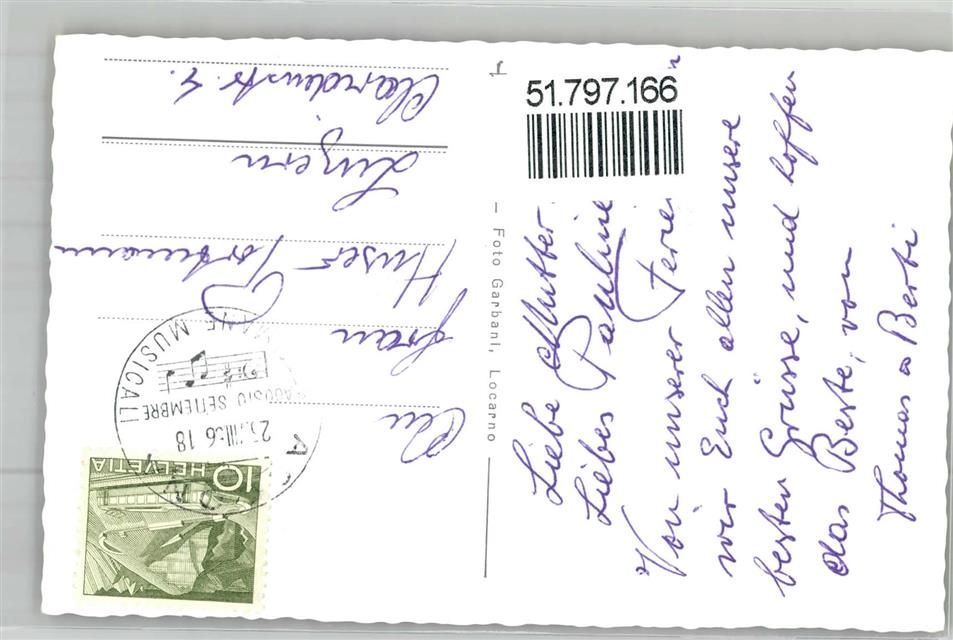 Liebe Mutter
Liebes Pauline
Von unserer Ferie
wir Euch allen unsere
besten Grüsse, und hoffen
das Beste, von
Thomas & Berti
— Foto Garbani, Locarno
51.797.166
An
Frau
Huser
Luzern
MUSICALI
AGOSTO SETTEMBRE
18
HELVETIA
10